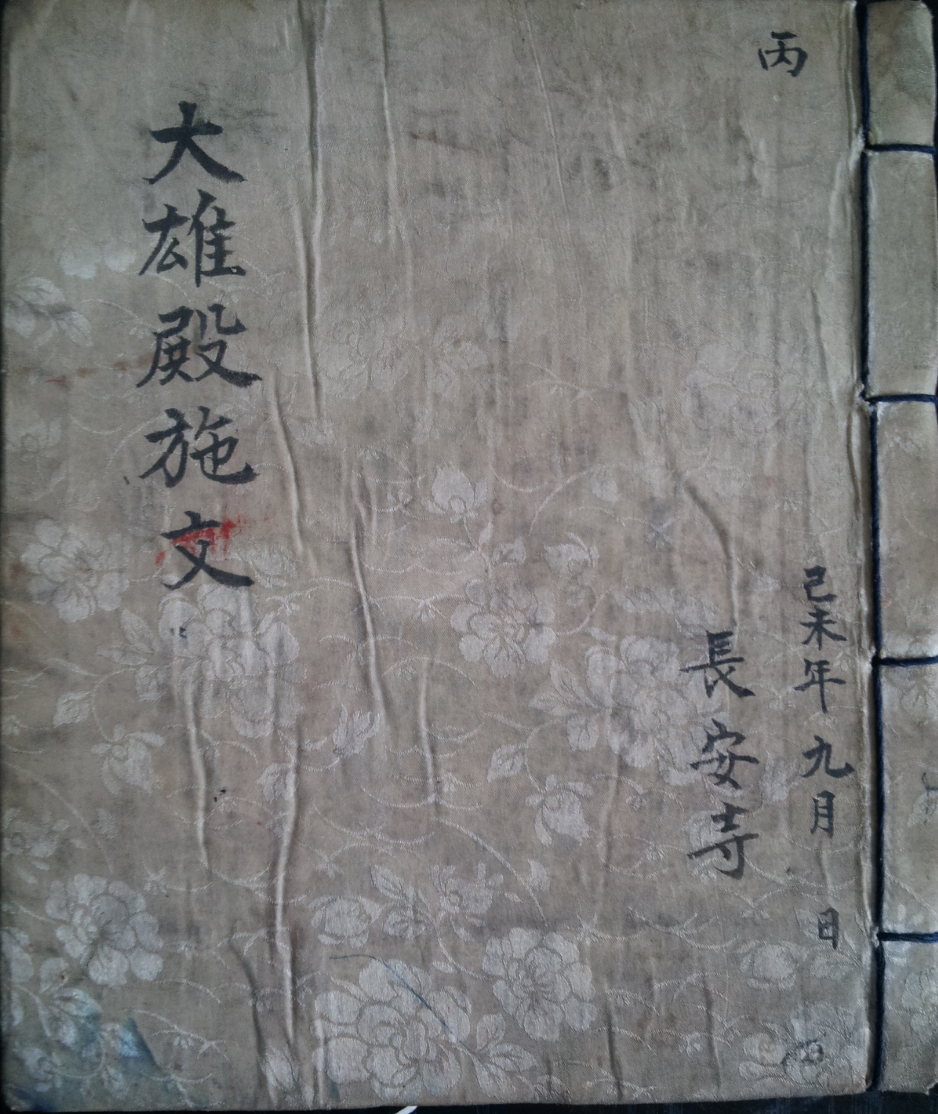 丙
己未年 九月 日
長安寺
大雄殿施文